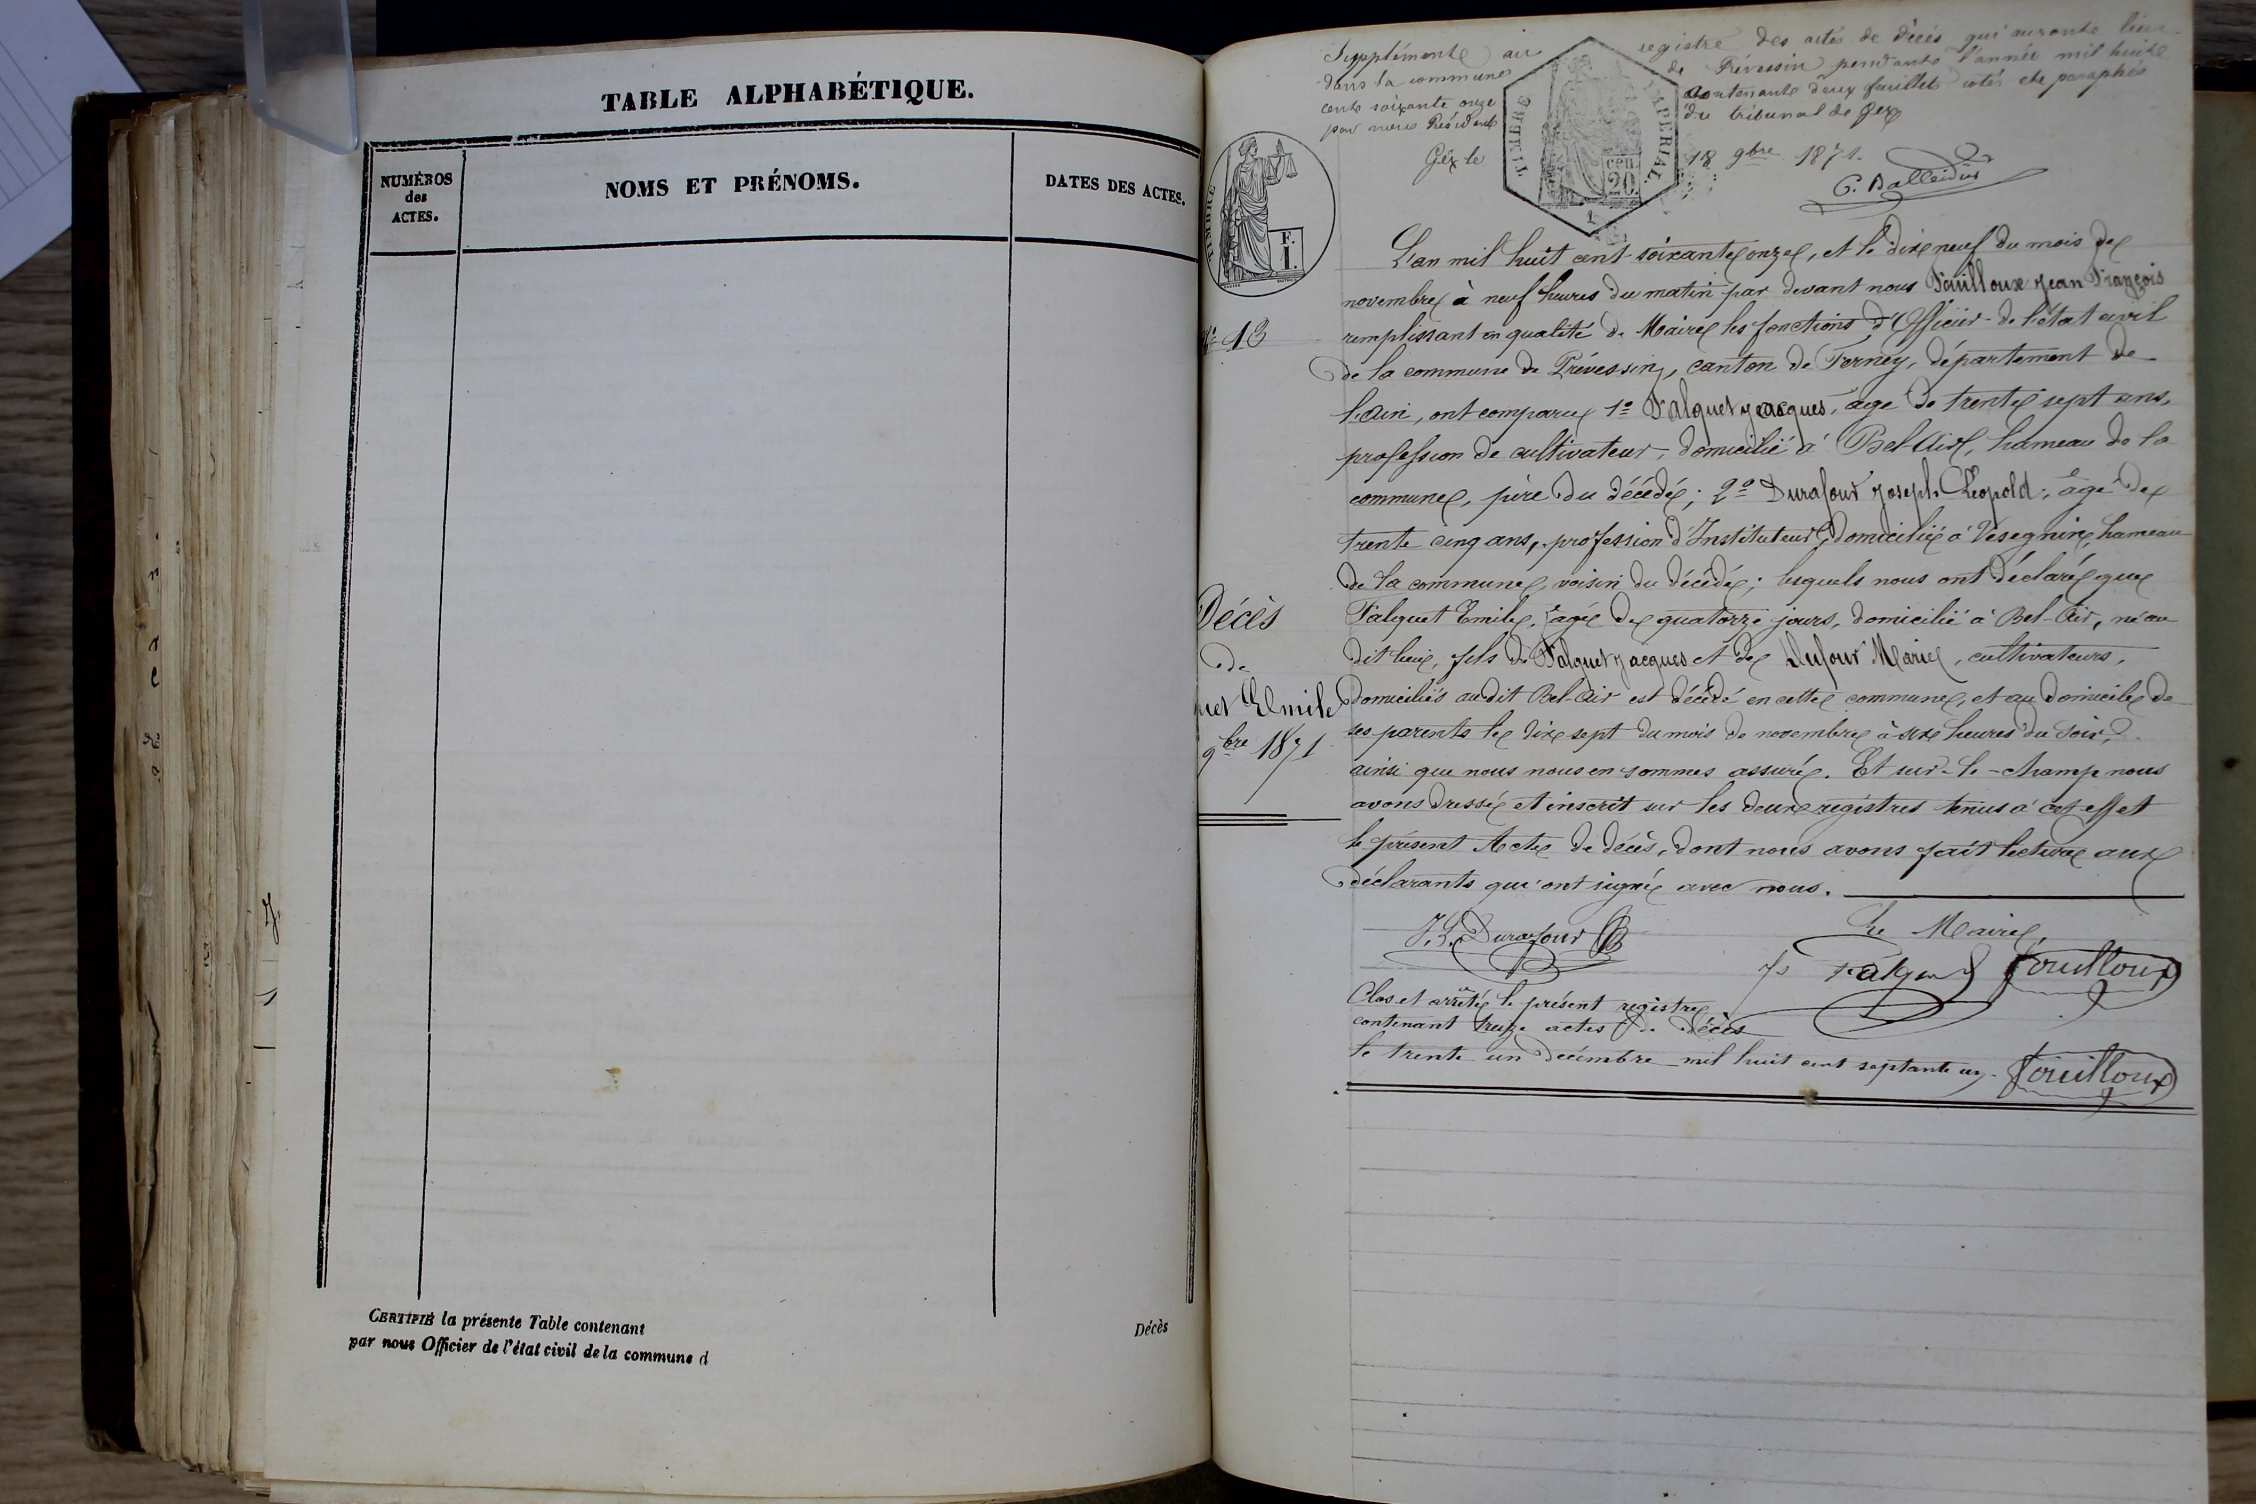 TABLE ALPHABÉTIQUE.
NUMÉROS
des
ACTES.
NOMS ET PRÉNOMS.
DATES DES ACTES.
CERTIFIÉ la présente Table contenant
par nous Officier de l'état civil de la commune d
Décès
Supplément au registre des actes de décès qui auront lieu
dans la commune de Prévessin pendant l'année mil huit
cent soixante onze contenant deux feuillets cotés et paraphés
par nous Président du tribunal de Gex
Gex le 18 9bre 1871.
TIMBRE
F.
1.
IMPERIAL.
cen.
20.
N° 13
Décès
de
Emile
9bre 1871
L'an mil huit cent soixante onze, et le dix neuf du mois de
novembre à neuf heures du matin par devant nous Fouilloux Jean François
remplissant en qualité de Maire les fonctions d'Officier de l'état civil
de la commune de Prévessin, canton de Ferney, département de
l'Ain, ont comparu 1° Falquet Jacques, âgé de trente sept ans,
profession de cultivateur, domicilié à Bel-Air, hameau de la
commune, père du décédé; 2° Durafour Joseph Léopold, âgé de
trente cinq ans, profession d'Instituteur, domicilié à Vesegnin, hameau
de la commune, voisin du décédé; lesquels nous ont déclaré que
Falquet Emile, âgé de quatorze jours, domicilié à Bel-Air, né au
dit lieu, fils de Falquet Jacques et de Dufour Marie, cultivateurs,
domiciliés audit Bel-Air est décédé en cette commune, et au domicile de
ses parents le dix sept du mois de novembre à six heures du soir,
ainsi que nous nous en sommes assuré. Et sur-le-champ nous
avons dressé et inscrit sur les deux registres tenus à cet effet
le présent Acte de décès, dont nous avons fait lecture aux
déclarants qui ont signé avec nous.
J. L. Durafour
Le Maire,
Js Falquet
Fouilloux
Clos et arrêté le présent registre
contenant treize actes de décès
le trente un décembre mil huit cent septante un.
Fouilloux